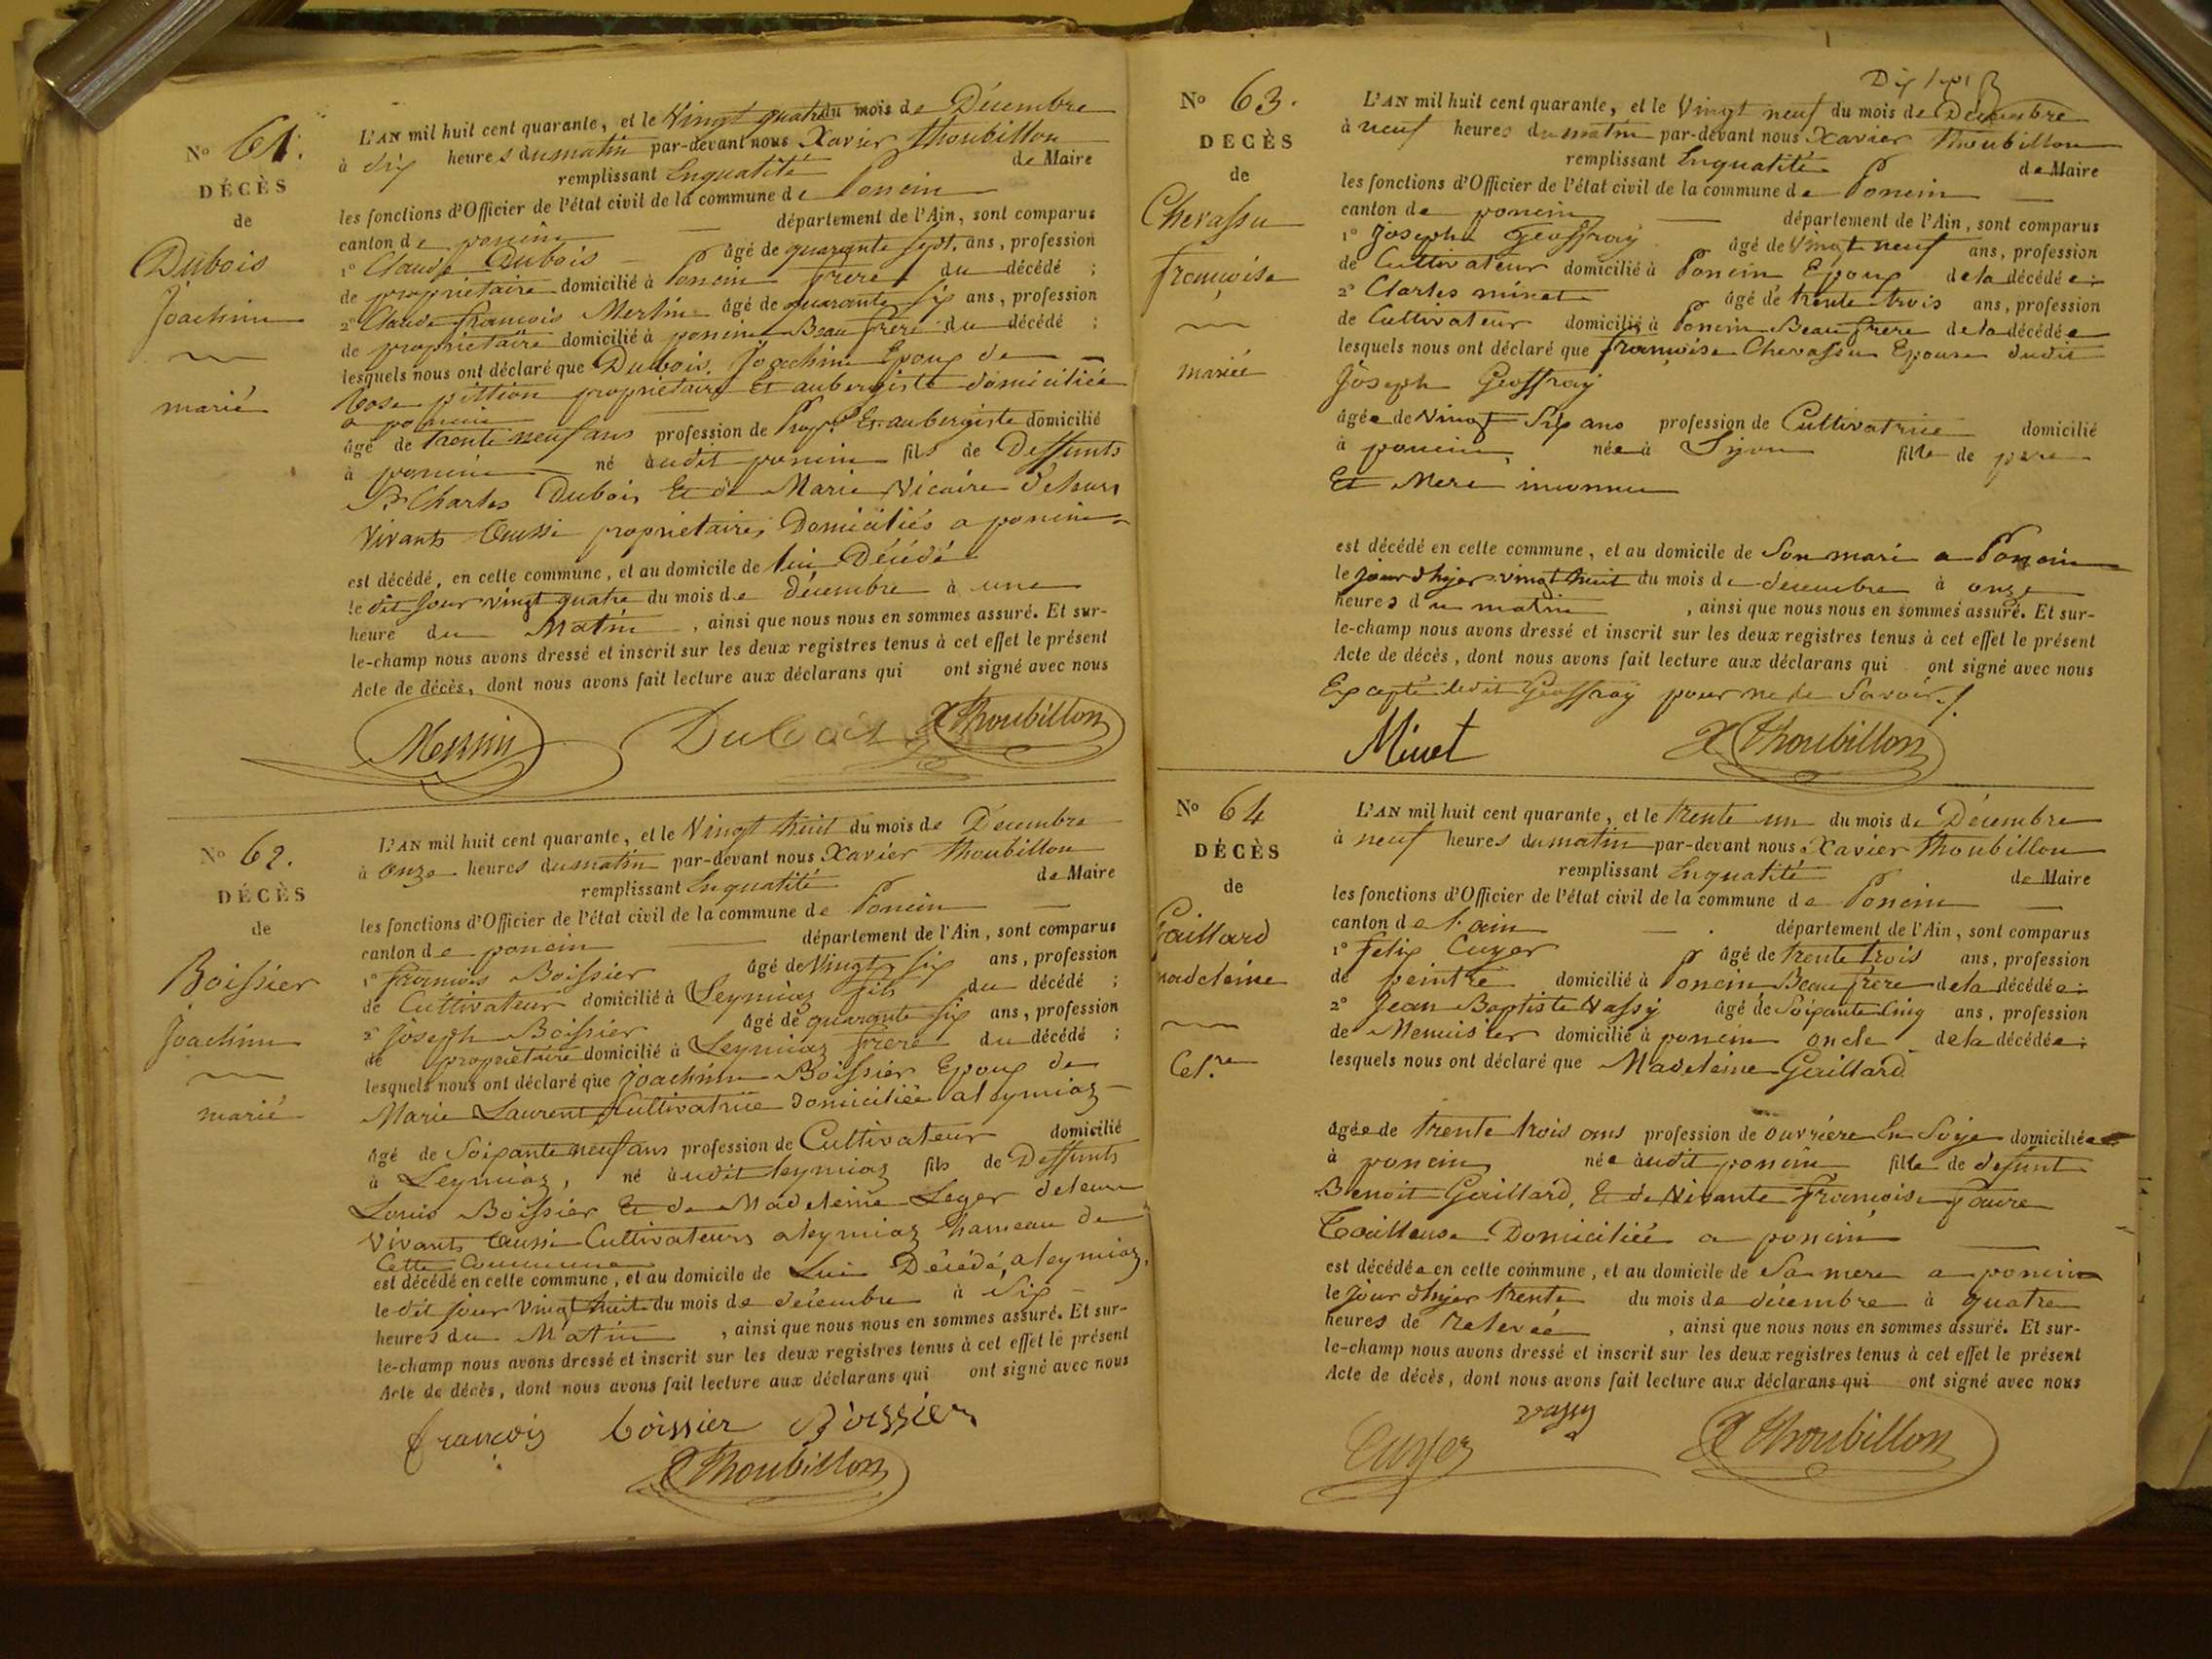 No 61.
DÉCÈS
de
Dubois
Joachim
marié
L'AN mil huit cent quarante, et le Vingt quatre du mois de Décembre
à dix heures du matin par-devant nous Xavier Thoubillon
remplissant Enqualité de Maire
les fonctions d'Officier de l'état civil de la commune de Poncin
canton de poncin département de l'Ain, sont comparus
1° Claude Dubois âgé de quarante sept ans, profession
de propriétaire domicilié à Poncin frere du décédé ;
2° Claude françois Merlin âgé de quarante six ans, profession
de propriétaire domicilié à poncin Beau frere du décédé ;
lesquels nous ont déclaré que Dubois Joachim Epoux de
Rose pittion propriétaire Et aubergiste domiciliée
a poncin
âgé de trente neuf ans profession de Prop.re Et aubergiste domicilié
à poncin né audit poncin fils de Deffunts
Sr. Charles Dubois Et de Marie Vicaire deleurs
Vivants Aussi propriétaires Domiciliés a poncin
est décédé, en cette commune, et au domicile de lui Décédé
le dit Jour vingt quatre du mois de décembre à une
heure du Matin, ainsi que nous nous en sommes assuré. Et sur-
le-champ nous avons dressé et inscrit sur les deux registres tenus à cet effet le présent
Acte de décès, dont nous avons fait lecture aux déclarans qui ont signé avec nous
Dubois X Thoubillon
No 62.
DÉCÈS
de
Boissier
Joachim
marié
L'AN mil huit cent quarante, et le Vingt huit du mois de Décembre
à onze heures du matin par-devant nous Xavier Thoubillon
remplissant Enqualité de Maire
les fonctions d'Officier de l'état civil de la commune de Poncin
canton de poncin département de l'Ain, sont comparus
1° françois Boissier âgé de Vingt six ans, profession
de Cultivateur domicilié à Leymiaz fils du décédé ;
2° Joseph Boissier âgé de quarante six ans, profession
de propriétaire domicilié à Leymiaz frere du décédé ;
lesquels nous ont déclaré que Joachim Boissier Epoux de
Marie Laurent Cultivatrice domiciliée a leymiaz
âgé de Soixante neuf ans profession de Cultivateur domicilié
à Leymiaz, né audit leymiaz fils de Deffunts
Louis Boissier Et de Madeleine Leger deleur
Vivants Aussi Cultivateurs a leymiaz hameau de
Cette Commune
est décédé en cette commune, et au domicile de Lui Décédé, a leymiaz,
le dit jour Vingt huit du mois de décembre à Six
heures du Matin, ainsi que nous nous en sommes assuré. Et sur-
le-champ nous avons dressé et inscrit sur les deux registres tenus à cet effet le présent
Acte de décès, dont nous avons fait lecture aux déclarans qui ont signé avec nous
françois boissier Boissier
X Thoubillon
No 63.
DECÈS
de
Chevassu
françoise
mariée
L'AN mil huit cent quarante, et le Vingt neuf du mois de Décembre
à neuf heures du matin par-devant nous Xavier Thoubillon
remplissant Enqualité de Maire
les fonctions d'Officier de l'état civil de la commune de Poncin
canton de poncin département de l'Ain, sont comparus
1° Joseph Geoffray âgé de Vingt neuf ans, profession
de Cultivateur domicilié à Poncin Epoux de la décédée ;
2° Charles minet âgé de trente trois ans, profession
de Cultivateur domicilié à Poncin Beau frere de la décédée
lesquels nous ont déclaré que françoise Chevassu Epouse dudit
Joseph Geoffray
âgée de Vingt Six ans profession de Cultivatrice domicilié
à poncin, née à Lyon fille de pere
Et Mere inconnu
est décédé en cette commune, et au domicile de Son mari a Poncin
le jour d'hyer vingt huit du mois de décembre à onze
heures du matin, ainsi que nous nous en sommes assuré. Et sur-
le-champ nous avons dressé et inscrit sur les deux registres tenus à cet effet le présent
Acte de décès, dont nous avons fait lecture aux déclarans qui ont signé avec nous
Excepté ledit Geoffray pour ne le Savoir ./.
Minet X Thoubillon
No 64
DÉCÈS
de
Gaillard
madeleine
Cel.re
L'AN mil huit cent quarante, et le trente un du mois de Décembre
à neuf heures du matin par-devant nous Xavier Thoubillon
remplissant Enqualité de Maire
les fonctions d'Officier de l'état civil de la commune de Poncin
canton de l'ain département de l'Ain, sont comparus
1° Felix Cuyer âgé de trente trois ans, profession
de peintre domicilié à Poncin Beau frere de la décédée ;
2° Jean Baptiste Vassy âgé de Soixante Cinq ans, profession
de Menuisier domicilié à poncin oncle de la décédée ;
lesquels nous ont déclaré que Madeleine Gaillard
âgée de trente trois ans profession de ouvriere En Soye domiciliée
à poncin née audit poncin fille de defunt
Benoit Gaillard, Et de Vivante françoise favre
Tailleuse Domiciliée a poncin
est décédée en cette commune, et au domicile de Sa mere a poncin
le Jour d'hyer trente du mois de décembre à quatre
heures de relevée, ainsi que nous nous en sommes assuré. Et sur-
le-champ nous avons dressé et inscrit sur les deux registres tenus à cet effet le présent
Acte de décès, dont nous avons fait lecture aux déclarans qui ont signé avec nous
Cuyer vassy X Thoubillon